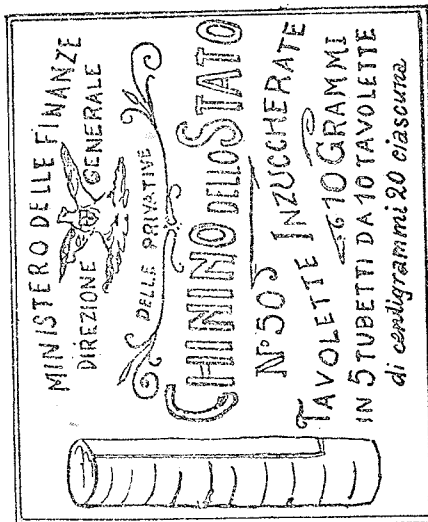 MINISTERO DELLE FINANZE
DIREZIONE GENERALE
DELLE PRIVATIVE
CHININO DELLO STATO
N° 50
TAVOLETTE INZUCCHERATE
10 GRAMMI
IN 5 TUBETTI DA 10 TAVOLETTE
di centigrammi 20 ciascuna